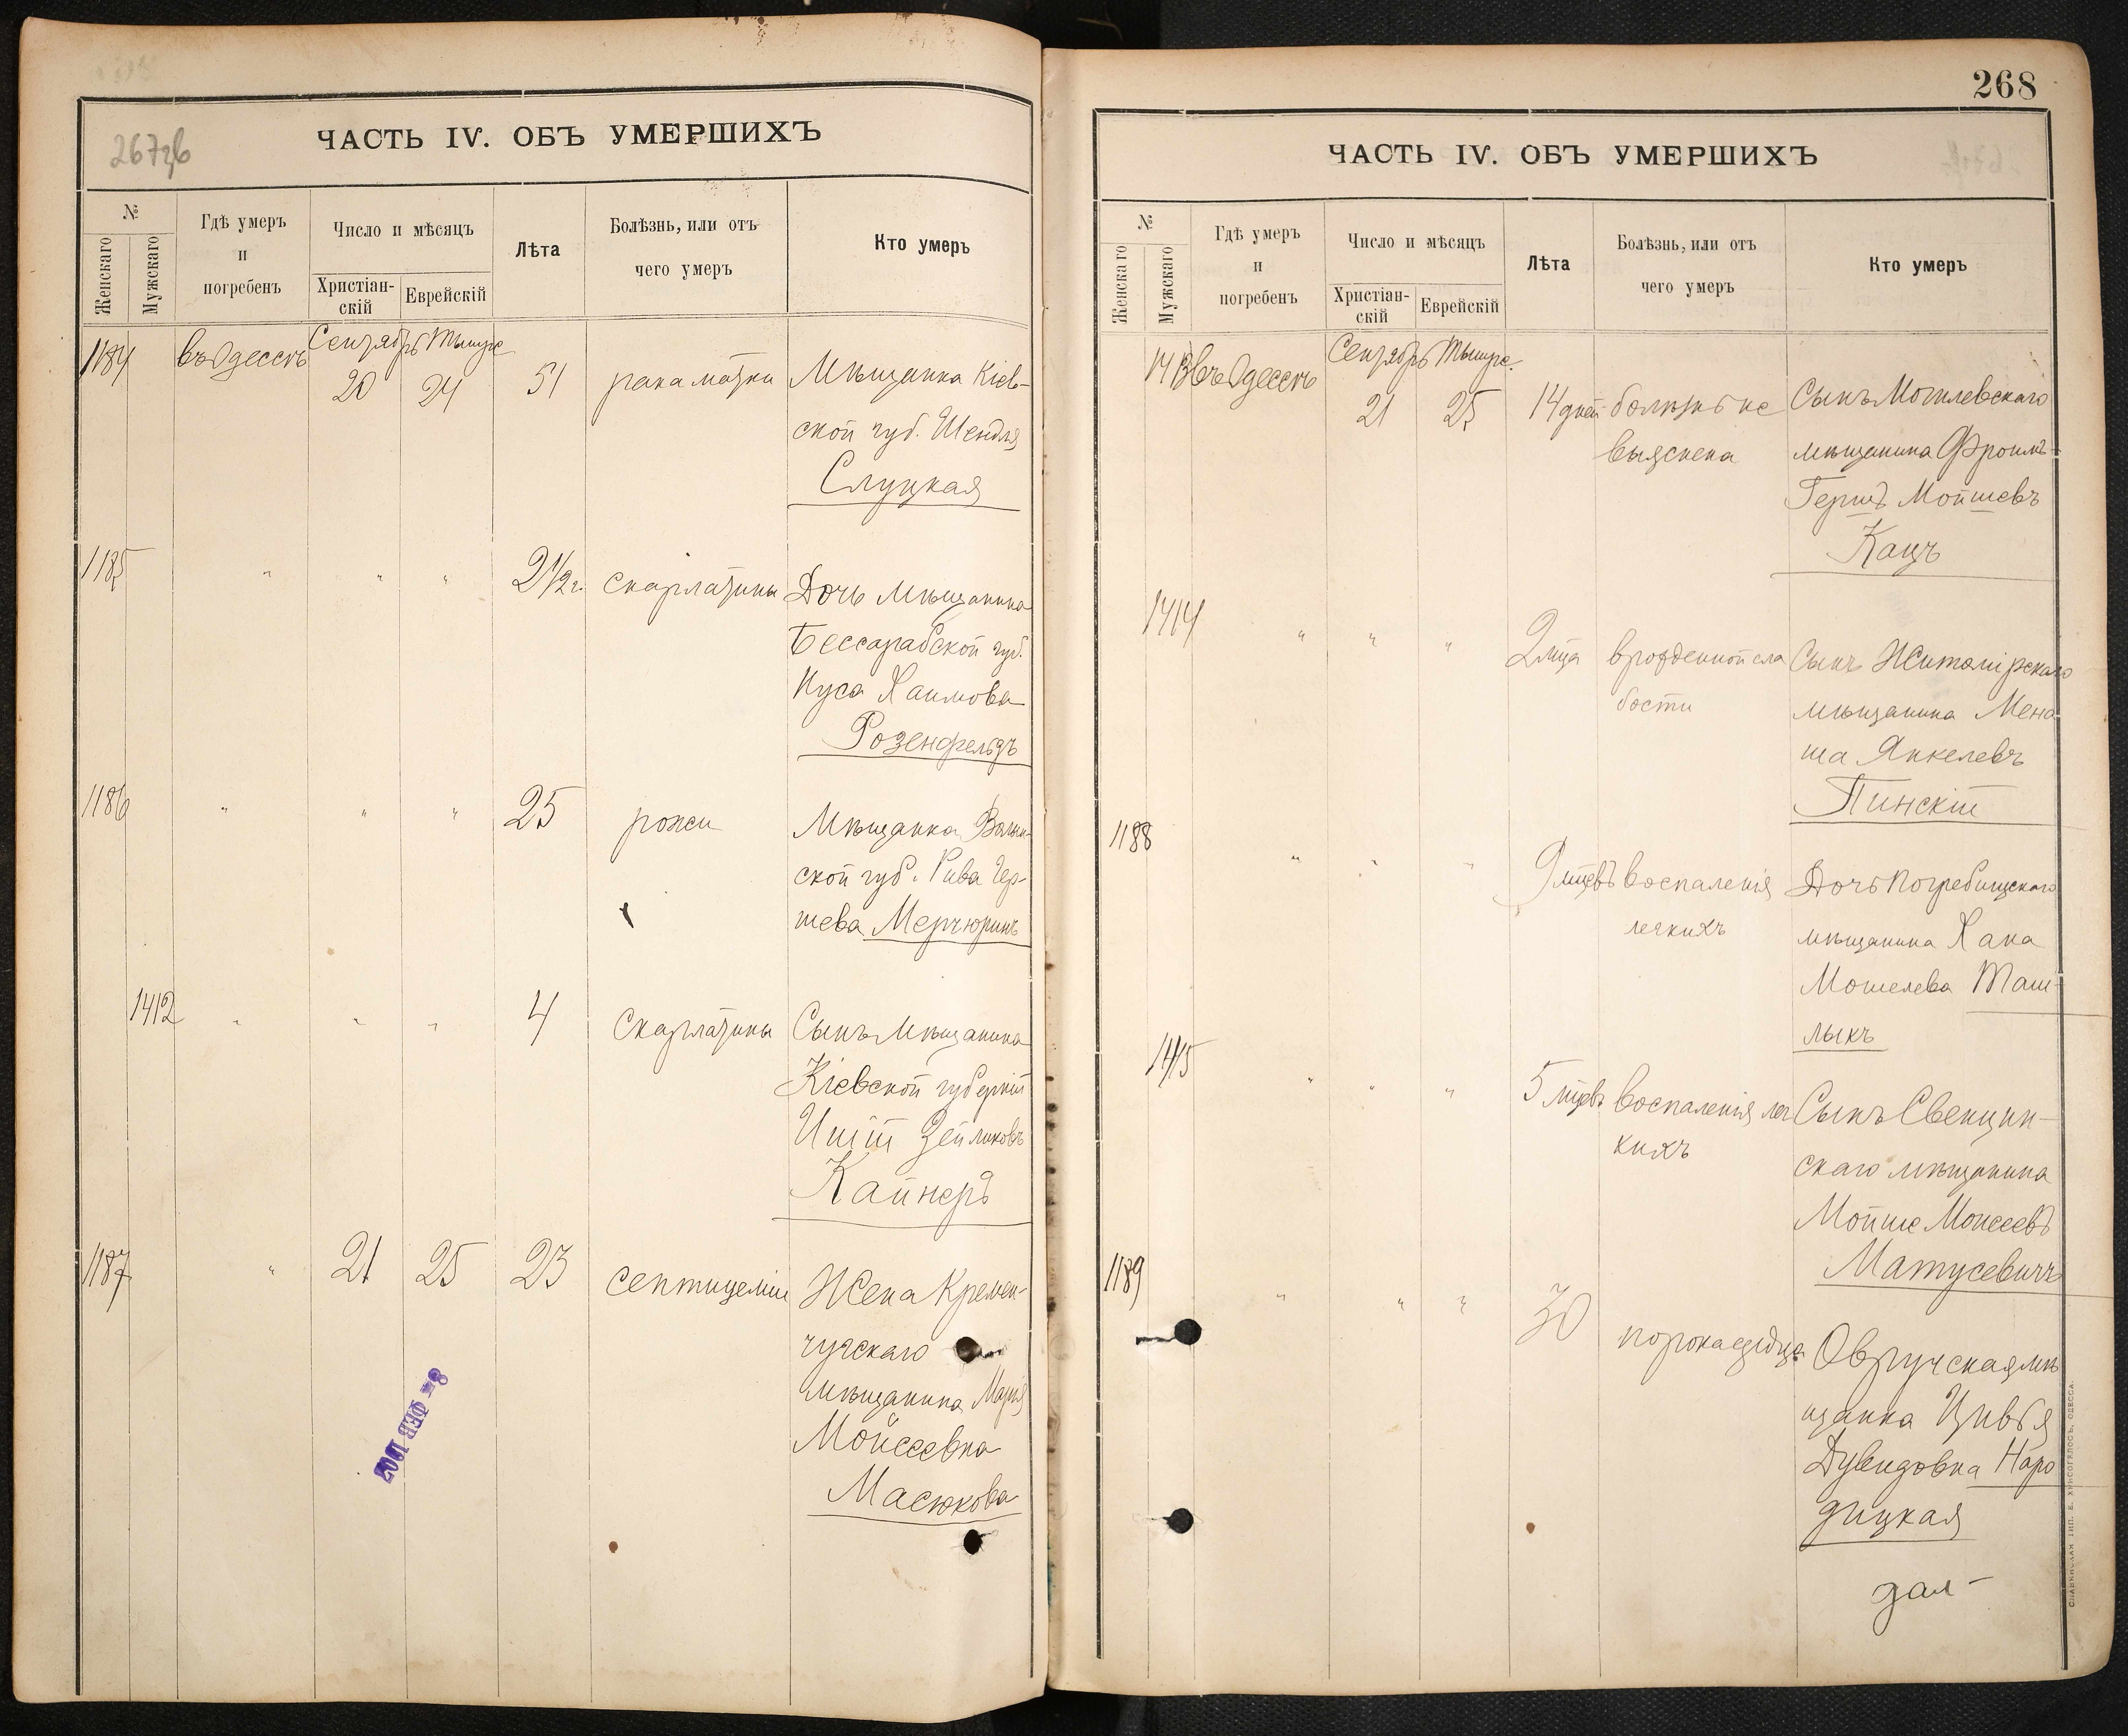 267зв
ЧАСТЬ IV. ОБЪ УМЕРШИХЪ
№
Женскаго
Мужскаго
Гдѣ умеръ
и
погребенъ
Число и мѣсяцъ
Христіан-
скій
Еврейскій
Лѣта
Болѣзнь, или отъ
чего умеръ
Кто умеръ
1184 въ Одессѣ Сентябрь Тишре
20 24 51 рака матки Мѣщанка Кіев-
ской губ. Шендля
Слуцкая
1185 " " " 2 1/2 г. скарлатины Дочь мѣщанина
Бессарабской губ.
Нуса Хаимова
Розенфельдъ
1186 " " " 25 рожи Мѣщанка Волын-
ской губ. Рива Гер-
шева Мерчюринъ
1412 " " " 4 скарлатины Сынъ мѣщанина
Кіевской губерніи
Зейликовъ
Кайнеръ
1187 " 21 25 23 септицеміи Жена Кремен-
чугскаго
мѣщанина Марія
Мойсеевна
Масюкова
8 – ФЕВ 1902
268
ЧАСТЬ IV. ОБЪ УМЕРШИХЪ
№
Женскаго
Мужскаго
Гдѣ умеръ
и
погребенъ
Число и мѣсяцъ
Христіан-
скій
Еврейскій
Лѣта
Болѣзнь, или отъ
чего умеръ
Кто умеръ
1413 въ Одессѣ Сентябрь Тишре
21 25 14 дней болѣзнь не Сынъ Могилевскаго
выяснена мѣщанина Фроимъ-
Гершъ Мойшевъ
Кацъ
1414 " " " 2 мца врожденной сла Сынъ Житомірскаго
бости мѣщанина Мена
ша Янкелевъ
Пинскій
1188 " " " 9 мцевъ воспаленія Дочь Погребищскаго
легкихъ мѣщанина Хана
Мошелева Таш-
лыкъ
1415 " " " 5 мцевъ воспаленія лег Сынъ Свенцян-
кихъ скаго мѣщанина
Мойше Моисеевъ
Матусевичъ
1189 " " " 30 порока сердца Овручская мѣ
щанка Цивья
Дувидовна Наро
дицкая
дал-
СЛАВЯНСКАЯ ТИП. Е. ХРИСОГЕЛОСЪ, ОДЕССА.